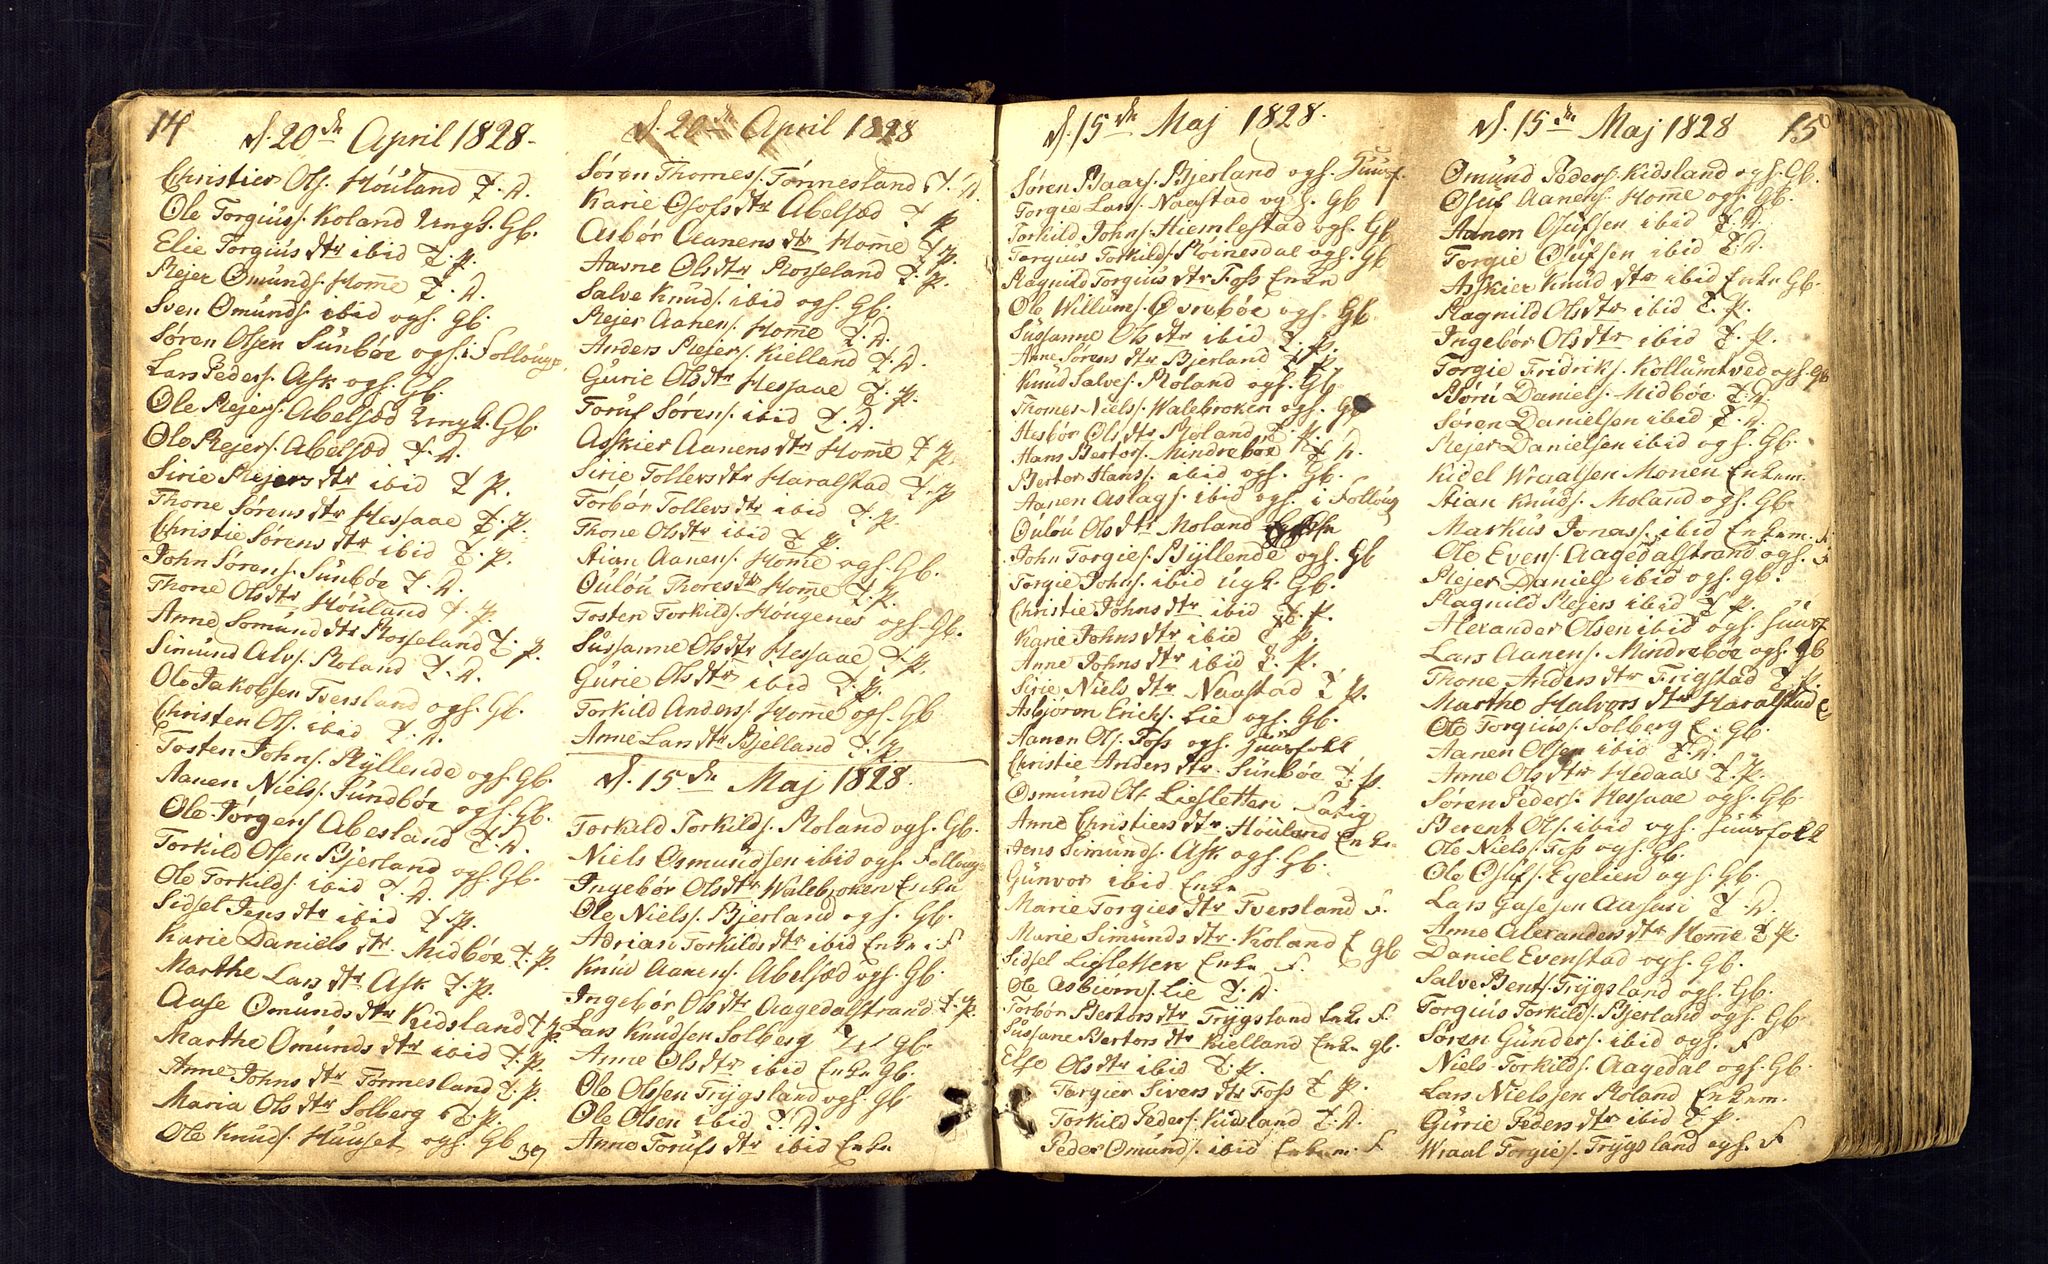 14
d. 20de April 1828.
Christier Ols. Höuland T. D.
Ole Torgius. Roland Ungk. Gb.
Elie Torgiusdtr ibid T. P.
Rejer Omunds. Home T. D.
Sven Omunds. ibid ogh. Gb.
Søren Olsen Sunbøe ogh. i Follouge
Lars Peders. Ask ogh. Gb.
Ole Rejers. Abelsæd Ungk. Gb.
Ole Rejers. Abelsæd T. D.
Sirie Rejersdtr ibid T P.
Thone Sørensdtr Hessaae T. P.
Christie Sørensdtr ibid T. P.
John Sørens. Sunbøe T. D.
Thone Olsdtr Höuland T. P.
Anne Somundsdtr Rosseland T. P.
Simund Alvs. Roland T. D.
Ole Jakobsen Tversland ogh. Gb.
Christen Ols. ibid T. D.
Tosten Johns. Ryllende ogh. Gb.
Aanen Niels. Sundbøe ogh. Gb.
Ole Jørgens. Abesland T. D.
Torkild Olsen Bjerland ogh. Gb.
Ole Torkilds. ibid T. D.
Sidsel Jensdtr ibid T. P.
Karie Danielsdtr. Midbøe T. P.
Marthe Larsdtr Ask T. P.
Aase Omundsdtr Kidsland T P.
Marthe Omundsdtr ibid T. P.
Anne Johnsdtr Tønnesland T. P.
Maria Olsdtr Solberg T. P.
Ole Knuds. Huuset ogh. Gb
39
d. 20de April 1828
Søren Thomes. Tønnesland T. D.
Karie Osofsdtr Abelsæd T. P
Asbør Aanensdtr Home T P.
Aasne Olsdtr Rosseland T. P.
Salve Knuds. ibid ogh. Gb.
Rejer Aanens. Home T. D.
Anders Rejers. Kielland T. D.
Gurie Olsdtr Hessaae T. P.
Toruf Sørens. ibid T. D.
Asskier Aanensdtr Home T P.
Sirie Tollevsdtr Haralstad T. P
Torbør Tollevsdtr ibid T. P
Thone Olsdtr ibid T P.
Stian Aanens. Home ogh. Gb.
Oulou Thoresdtr Home T. P.
Tosten Torkilds. Höugenes ogh. Gb.
Sussanne Olsdtr Hessaae T. P.
Gurie Olsdtr ibid T. P.
Torkild Anders. Home ogh. Gb
Anne Larsdtr Bjelland T. P.
d. 15de Maj 1828.
Torkild Torkilds. Roland ogh. Gb.
Niels Osmundsen ibid ogh. Follouge
Ingebør Olsdtr Walebroken Enke
Ole Niels. Bjerland ogh. Gb.
Adrian Torkildsdtr ibid Enke i F
Knud Aanens. Abelsæd ogh. Gb.
Ingebør Olsdtr Aagedalstrand T. P.
Lars Knudsen Solberg Gb.
Anne Olsdtr ibid Enke Gb.
Ole Olssen Trygsland ogh. Gb
Ole Olsen ibid T. D.
Anne Torufsdtr ibid Enke
d. 15de Maj 1828.
Søren Baars. Bjerland ogh. Huusf.
Torgie Lars. Naastad ogh. Gb
Torkild Johns. Hiemlestad ogh. Gb
Torgius Torkilds. Röinesdal ogh. Gb
Ragnild Torgiusdtr Foss Enke
Ole Willums. Øvrebøe ogh. Gb.
Sussanne Olsdtr ibid T. P.
Anne Sørensdtr Bjerland T P.
Knud Salves. Roland ogh. Gb
Thomes Niels. Walebroken ogh. Gb
Hesbør Olsdtr Roland T. P.
Hans Bertors. Mindrebøe T. D.
Bertor Hans. ibid ogh. Gb.
Aanen Aslags. ibid ogh. i Follouge
Oulou Olsdtr Roland
John Torgies. Ryllende ogh. Gb
Torgie Johns. ibid Ugk. Gb.
Christie Johnsdtr ibid T. P.
Karie Johnsdtr ibid T. P.
Anne Johnsdtr ibid T. P.
Sirie Nielsdtr Naastad T P.
Asbjoren Ericks. Lie ogh. Gb.
Aanen Ols. Foss ogh. Huusfolk
Christie Andersdtr. Sunbøe T. P.
Osmund Ols. Liesletten Fattig
Anne Christiersdtr. Höuland Enke
Jens Simunds. Ask ogh. Gb.
Gunvor ibid Enke
Marie Torgiesdtr Tversland F.
Marie Simundsdtr. Roland E Gb
Sidsel Liesletten Enke F.
Ole Asbiorns. Lie T. D.
Torbør Bertorsdtr Trygsland Enke F
Sussane Bertorsdtr Kielland Enke Gb.
Else Olsdtr ibid T. P.
Targier Siversdtr Foss T. P.
Torkild Peders. Kidsland T. D.
Peder Omunds. ibid Enkem. F
d. 15de Maj 1828
15
Omund Peders. Kidsland ogh. Gb.
Osuf Aanens. Home ogh. Gb.
Aanen Olufsen ibid T. D.
Torgie Olufsen ibid T. D.
Asskier Knudsdtr ibid Enke Gb.
Ragnild Olsdtr ibid T. P.
Ingebør Olsdtr ibid T. P.
Torgie Fridriks. Kollumtved ogh. Gb
Børu Daniels. Midbøe T. D.
Søren Danielsen ibid T. D.
Rejer Danielsen ibid ogh. Gb.
Kidel Wraalsen Monen Enkem.
Stian Knuds. Moland ogh. Gb
Markus Jonas. ibid Enkem. F
Ole Evens. Aagedalstrand ogh. F
Rejer Daniels ibid ogh. Gb.
Ragnild Rejers ibid T P.
Alexander Olsen ibid ogh. Huusf
Lars Aanens. Mindrebøe ogh. Gb
Thone Andersdtr Frigstad T. P.
Marthe Halvorsdtr Haralstad E
Ole Torgius. Solberg E. Gb.
Aanen Olsen ibid T. D.
Anne Olsdtr Hedaas T. P.
Søren Peders. Hessaae ogh. Gb.
Berent Ols. ibid ogh. Huusfolk
Ole Niels. Foss ogh. Gb.
Ole Osufs. Egelien ogh. Gb.
Lars T. D.
Anne Alexandersdtr Home T P.
Daniel Evenstad ogh. Gb.
Salve Bents. Trygsland ogh. Gb.
Torgius Torkilds. Bjerland ogh. Gb
Søren Gunders. ibid ogh. F
Niels Torkilds. Aagedal ogh. Gb.
Lars Nielssen Roland Enkem.
Gurrie Pedersdtr ibid T P.
Wraal Torgies. Trygsland ogh. F